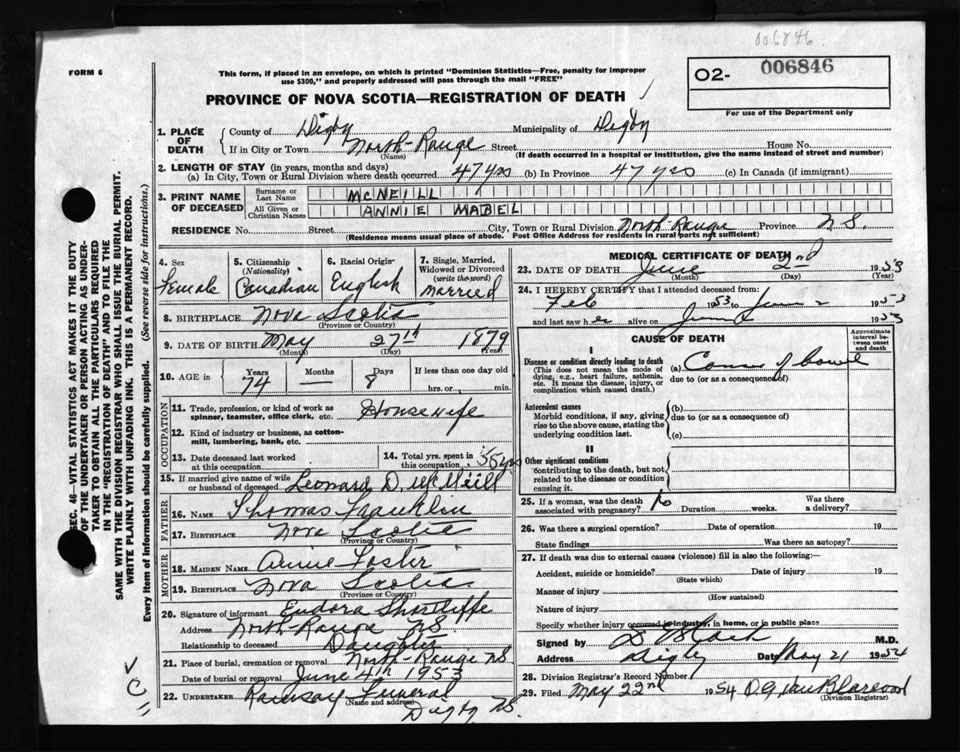 006846
FORM 6
This form, if placed in an envelope, on which is printed "Dominion Statistics—Free, penalty for improper
use $300," and properly addressed will pass through the mail "FREE"
O2- 006846
For use of the Department only
PROVINCE OF NOVA SCOTIA—REGISTRATION OF DEATH
1. PLACE OF DEATH
County of Digby Municipality of Digby
If in City or Town North-Range Street House No.
(Name) (If death occurred in a hospital or institution, give the name instead of street and number)
2. LENGTH OF STAY (in years, months and days)
(a) In City, Town or Rural Division where death occurred 47 yrs (b) In Province 47 yrs (c) In Canada (if immigrant)
3. PRINT NAME OF DECEASED
Surname or Last Name MCNEILL
All Given or Christian Names ANNIE MABEL
RESIDENCE No. Street City, Town or Rural Division North Range Province N S.
(Residence means usual place of abode. Post Office Address for residents in rural parts not sufficient)
4. Sex Female
5. Citizenship (Nationality) Canadian
6. Racial Origin English
7. Single, Married, Widowed or Divorced (write the word) Married
8. BIRTHPLACE Nova Scotia
(Province or Country)
9. DATE OF BIRTH May 27th 1879
(Month) (Day) (Year)
10. AGE in Years 74 Months — Days 8 If less than one day old hrs. or min.
OCCUPATION
11. Trade, profession, or kind of work as spinner, teamster, office clerk, etc. Housewife
12. Kind of industry or business, as cotton-mill, lumbering, bank, etc.
13. Date deceased last worked at this occupation
14. Total yrs. spent in this occupation 55 yrs
15. If married give name of wife or husband of deceased Leonard D. McNeill
FATHER
16. NAME Thomas Franklin
17. BIRTHPLACE Nova Scotia
(Province or Country)
MOTHER
18. MAIDEN NAME Annie Foster
19. BIRTHPLACE Nova Scotia
(Province or Country)
20. Signature of informant Eudora Shortliffe
Address North-Range NS
Relationship to deceased Daughter
21. Place of burial, cremation or removal North-Range NS
Date of burial or removal June 4th 1953
22. UNDERTAKER Ramsay Funeral
(Name and address)
Digby NS.
MEDICAL CERTIFICATE OF DEATH
23. DATE OF DEATH June 2nd 1953
(Month) (Day) (Year)
24. I HEREBY CERTIFY that I attended deceased from:
Feb 1953 to June 2 1953
and last saw her alive on June 1953
CAUSE OF DEATH
Approximate interval between onset and death
I
Disease or condition directly leading to death
(This does not mean the mode of dying, e.g., heart failure, asthenia, etc. It means the disease, injury, or complication which caused death.)
(a) Cancer of bowel
due to (or as a consequence of)
Antecedent causes
Morbid conditions, if any, giving rise to the above cause, stating the underlying condition last.
(b)
due to (or as a consequence of)
(c)
II
Other significant conditions
contributing to the death, but not related to the disease or condition causing it.
25. If a woman, was the death associated with pregnancy? No Duration weeks. Was there a delivery?
26. Was there a surgical operation? Date of operation 19
State findings Was there an autopsy?
27. If death was due to external causes (violence) fill in also the following:—
Accident, suicide or homicide? Date of injury 19
(State which)
Manner of injury
(How sustained)
Nature of injury
Specify whether injury occurred in industry, in home, or in public place
Signed by M.D.
Address Digby Date May 21 1954
28. Division Registrar's Record Number
29. Filed May 22nd 1954
(Division Registrar)
SEC. 46—VITAL STATISTICS ACT MAKES IT THE DUTY
OF THE UNDERTAKER OR PERSON ACTING AS UNDER-
TAKER TO OBTAIN ALL THE PARTICULARS REQUIRED
IN THE "REGISTRATION OF DEATH" AND TO FILE THE
SAME WITH THE DIVISION REGISTRAR WHO SHALL ISSUE THE BURIAL PERMIT.
WRITE PLAINLY WITH UNFADING INK. THIS IS A PERMANENT RECORD.
Every item of Information should be carefully supplied. (See reverse side for instructions.)